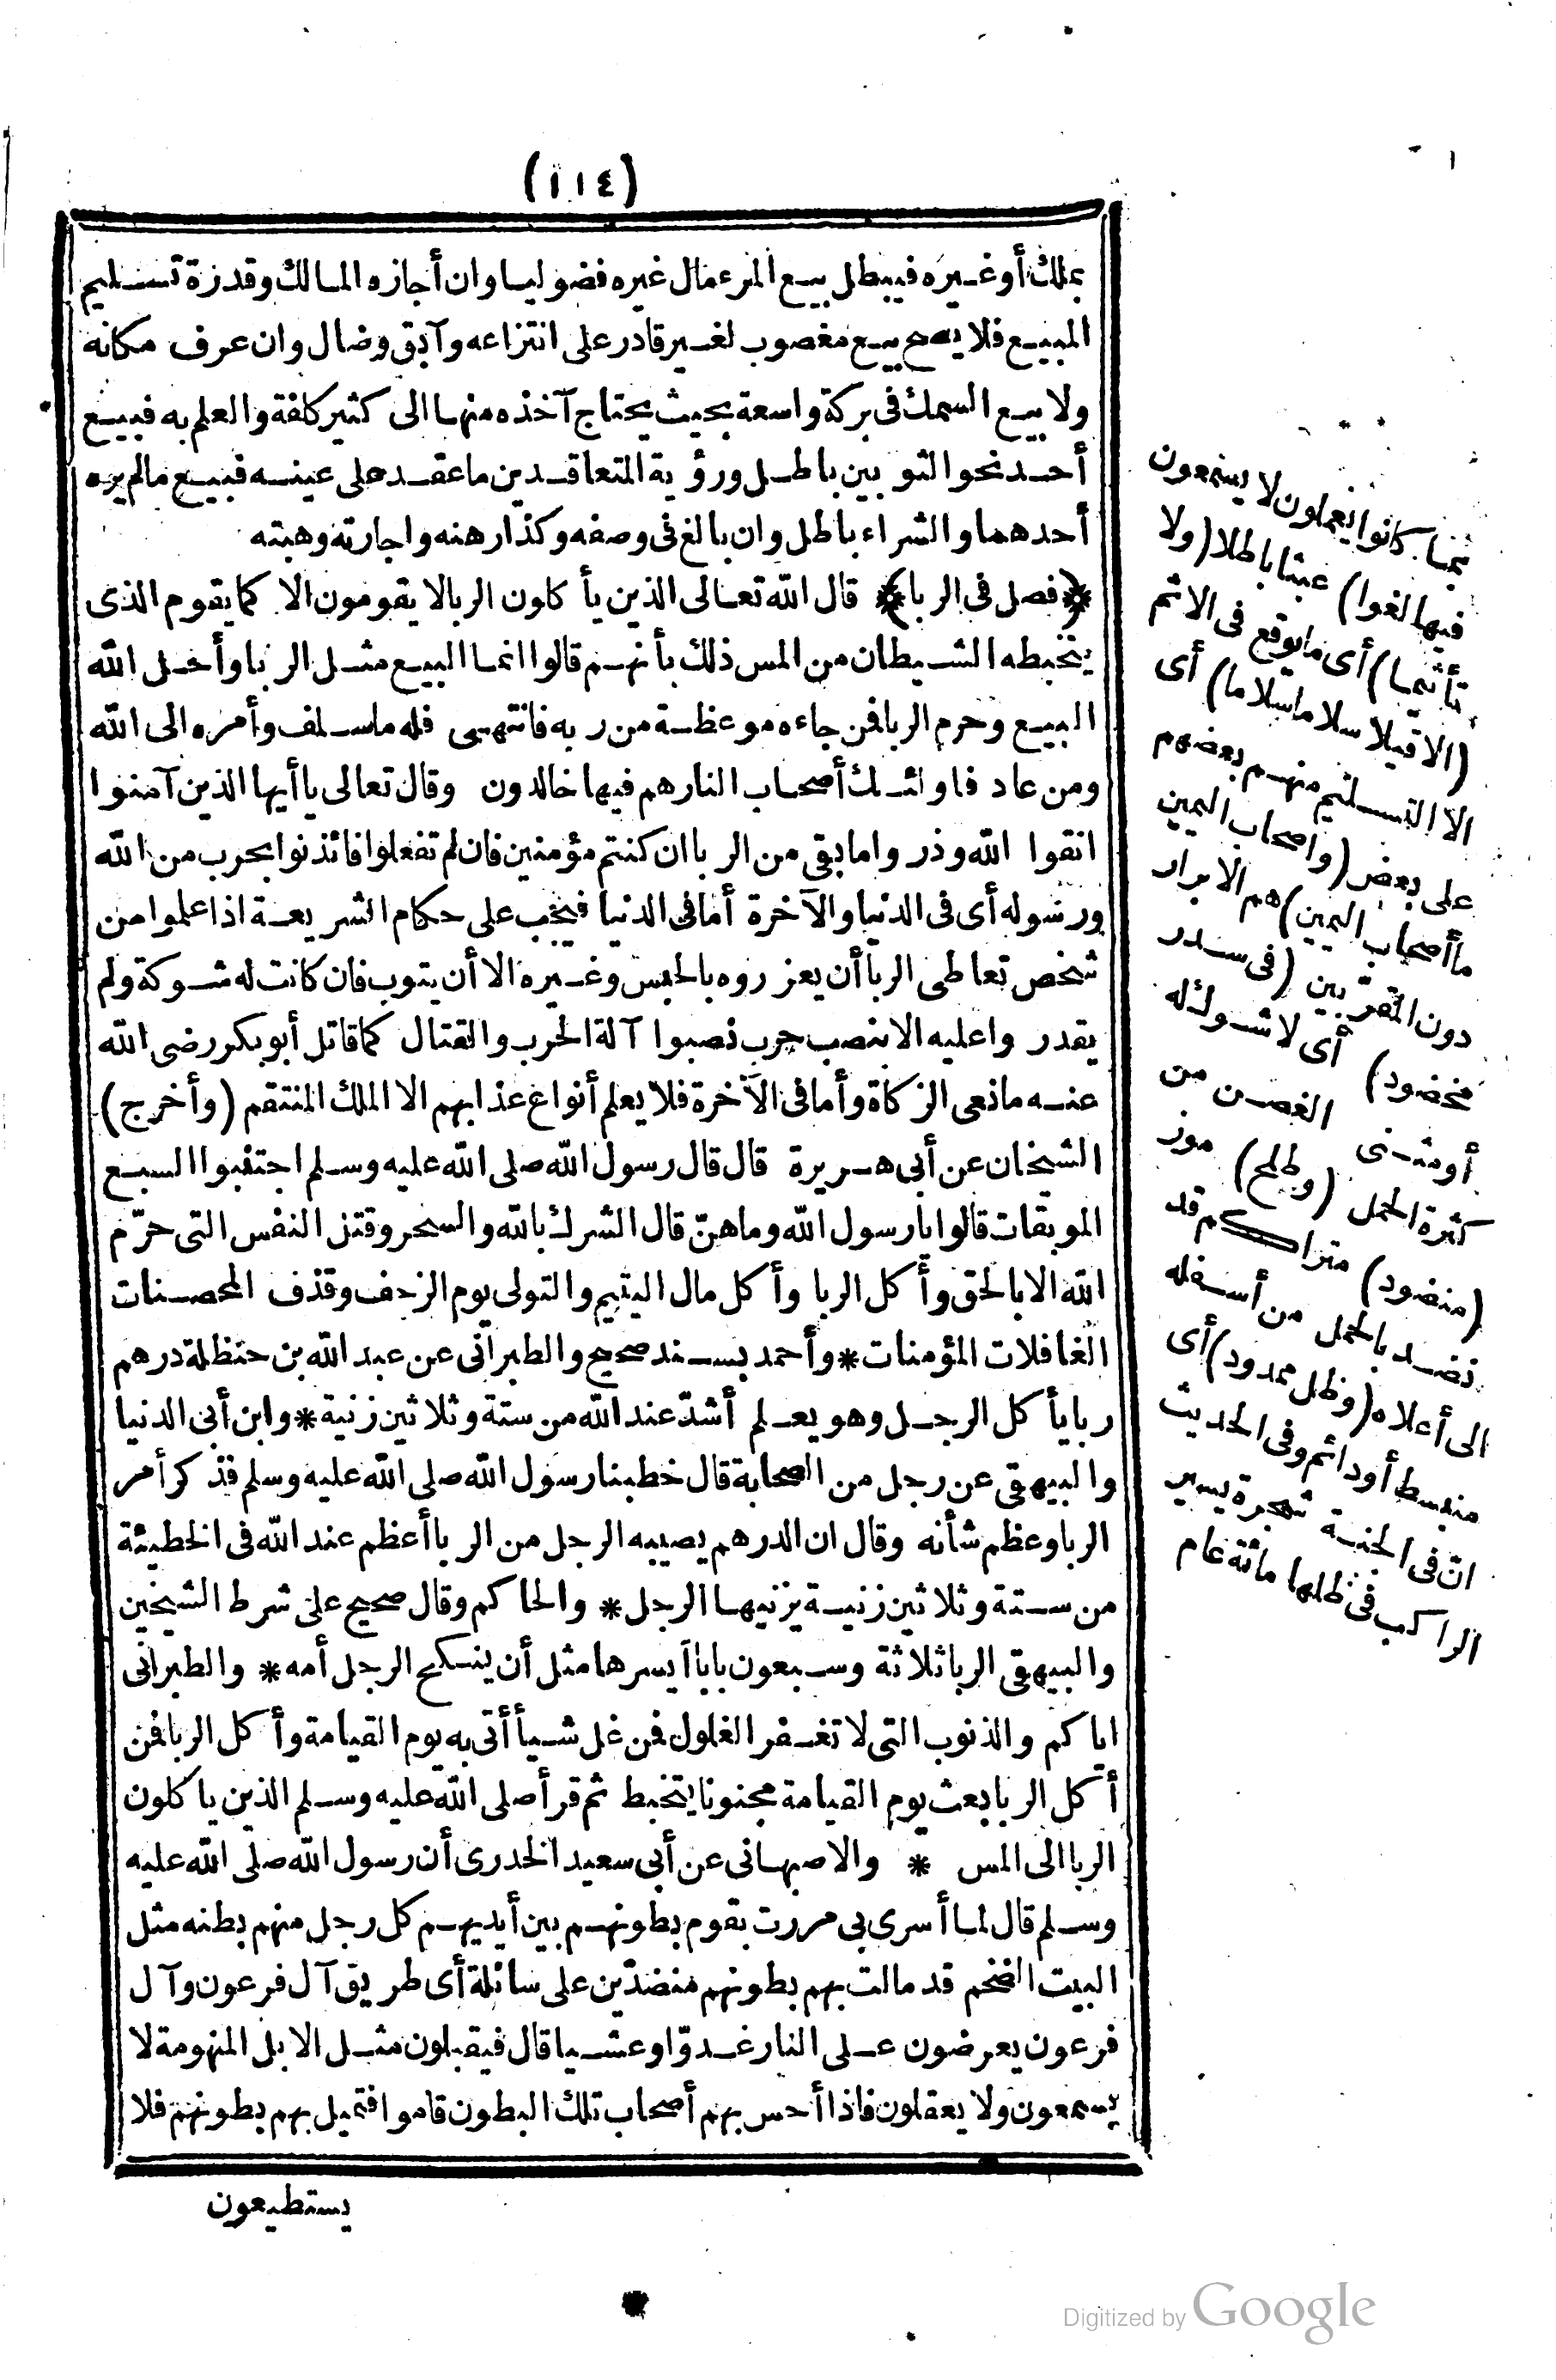 (١١٤)
بملك أو غيره فيبطل بيع المرء مال غيره فضوليا وان أجازه المالك وقدرة تسليم
المبيع فلا يصح بيع مغصوب لغير قادر على انتزاعه وآبق وضال وان عرف مكانه
ولا بيع السمك فى بركة واسعة بحيث يحتاج آخذه منها الى كثير كلفة والعلم به فبيع
أحد نحو الثوبين باطل ورؤية المتعاقدين ما عقد على عينه فبيع مالم يره
أحدهما والشراء باطل وان بالغ فى وصفه وكذا رهنه واجارته وهبته
﴿فصل فى الربا﴾ قال الله تعالى الذين يأكلون الربا لا يقومون الا كما يقوم الذى
يتخبطه الشيطان من المس ذلك بأنهم قالوا انما البيع مثل الربا وأحل الله
البيع وحرم الربا فمن جاءه موعظة من ربه فانتهى فله ما سلف وأمره الى الله
ومن عاد فاولئك أصحاب النار هم فيها خالدون وقال تعالى ياأيها الذين آمنوا
اتقوا الله وذروا ما بقى من الربا ان كنتم مؤمنين فان لم تفعلوا فائذنوا بحرب من الله
ورسوله أى فى الدنيا والآخرة أما فى الدنيا فيجب على حكام الشريعة اذا علموا من
شخص تعاطى الربا أن يعزروه بالحبس وغيره الا أن يتوب فان كانت له شوكة ولم
يقدروا عليه الا بنصب حرب نصبوا آلة الحرب والقتال كما قاتل أبو بكر رضى الله
عنه مانعى الزكاة وأما فى الآخرة فلا يعلم أنواع عذابهم الا الملك المنتقم (وأخرج)
الشيخان عن أبى هريرة قال قال رسول الله صلى الله عليه وسلم اجتنبوا السبع
الموبقات قالوا يا رسول الله وما هنّ قال الشرك بالله والسحر وقتل النفس التى حرّم
الله الا بالحق وأكل الربا وأكل مال اليتيم والتولى يوم الزحف وقذف المحصنات
الغافلات المؤمنات * وأحمد بسند صحيح والطبرانى عن عبد الله بن حنظلة درهم
ربا يأكل الرجل وهو يعلم أشدّ عند الله من ستة وثلاثين زنية * وابن أبى الدنيا
والبيهقى عن رجل من الصحابة قال خطبنا رسول الله صلى الله عليه وسلم فذكر أمر
الربا وعظم شأنه وقال ان الدرهم يصيبه الرجل من الربا أعظم عند الله فى الخطيئة
من ستة وثلاثين زنية يزنيها الرجل * والحاكم وقال صحيح على شرط الشيخين
والبيهقى الربا ثلاثة وسبعون بابا أيسرها مثل أن ينكح الرجل أمه * والطبرانى
اياكم والذنوب التى لا تغفر الغلول فمن غل شيأ أتى به يوم القيامة وأكل الربا فمن
أكل الربا بعث يوم القيامة مجنونا يتخبط ثم قرأ صلى الله عليه وسلم الذين ياكلون
الربا الى المس * والاصبهانى عن أبى سعيد الخدرى أن رسول الله صلى الله عليه
وسلم قال لما أسرى بى مررت بقوم بطونهم بين أيديهم كل رجل منهم بطنه مثل
البيت الضخم قد مالت بهم بطونهم منضدّين على سائلة أى طريق آل فرعون وآل
فرعون يعرضون على النار غدوّا وعشيا قال فيقبلون مثل الابل المنهومة لا
يسمعون ولا يعقلون فاذا أحس بهم أصحاب تلك البطون قاموا فتميل بهم بطونهم فلا
يستطيعون
بما كانوا يعملون لا يسمعون
فيها لغوا) عبثا باطلا (ولا
تأثيما) أى ما يوقع فى الاثم
(الا قيلا سلاما سلاما) أى
الا التسليم منهم بعضهم
على بعض (وأصحاب اليمين
ما أصحاب اليمين) هم الابرار
دون المقرّبين (فى سدر
مخضود) أى لا شوك له
أو مثنى الغصن من
كثرة الحمل (وطلح) موز
(منضود) متراكم قد
نضد بالحمل من أسفله
الى أعلاه (وظل ممدود) أى
منبسط أو دائم وفى الحديث
انّ فى الجنة شجرة يسير
الراكب فى ظلها مائة عام
Digitized by Google